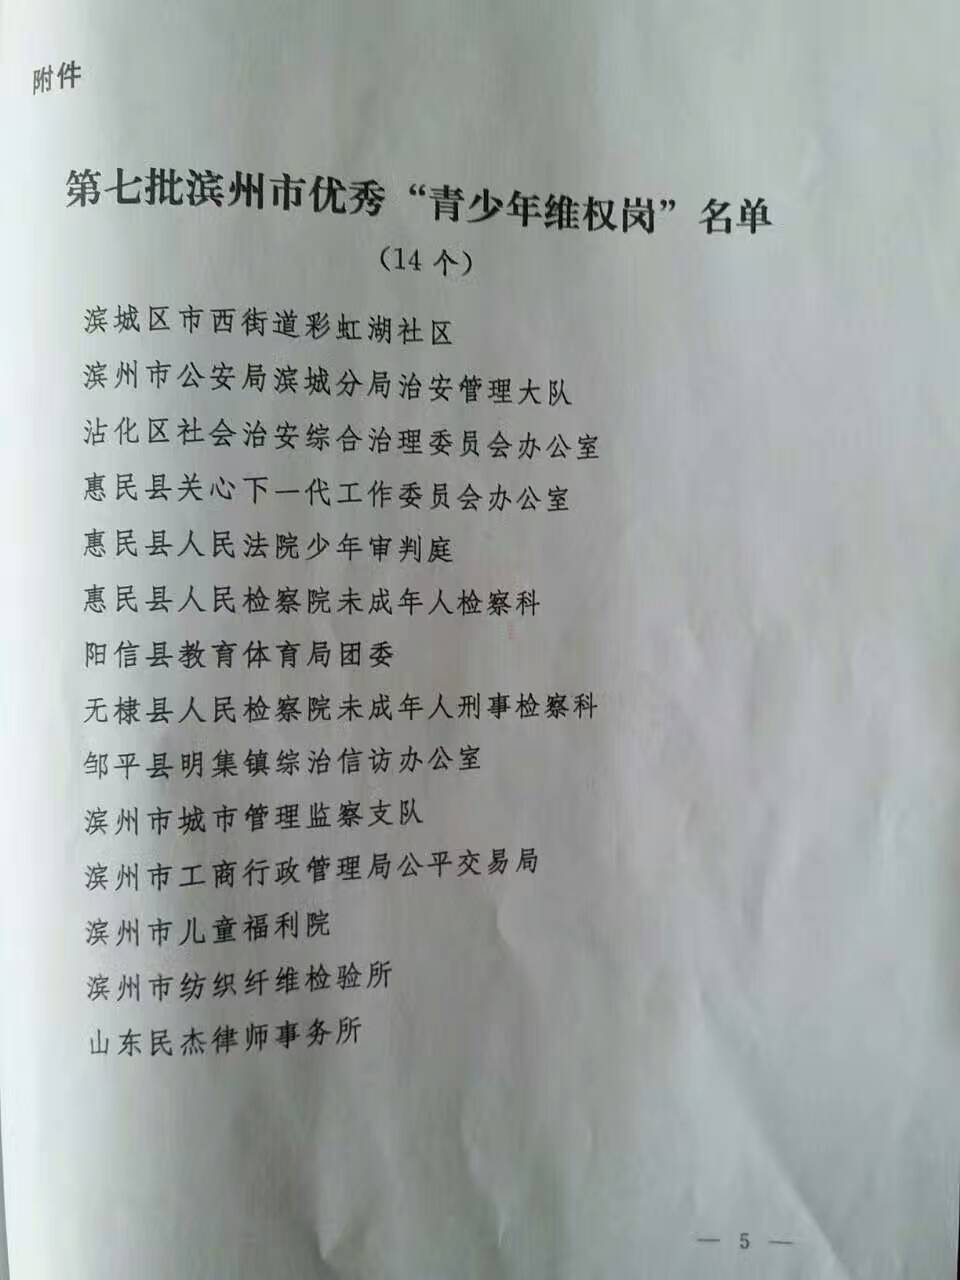 附件
第七批滨州市优秀“青少年维权岗”名单
（14 个）
滨城区市西街道彩虹湖社区
滨州市公安局滨城分局治安管理大队
沾化区社会治安综合治理委员会办公室
惠民县关心下一代工作委员会办公室
惠民县人民法院少年审判庭
惠民县人民检察院未成年人检察科
阳信县教育体育局团委
无棣县人民检察院未成年人刑事检察科
邹平县明集镇综治信访办公室
滨州市城市管理监察支队
滨州市工商行政管理局公平交易局
滨州市儿童福利院
滨州市纺织纤维检验所
山东民杰律师事务所
— 5 —